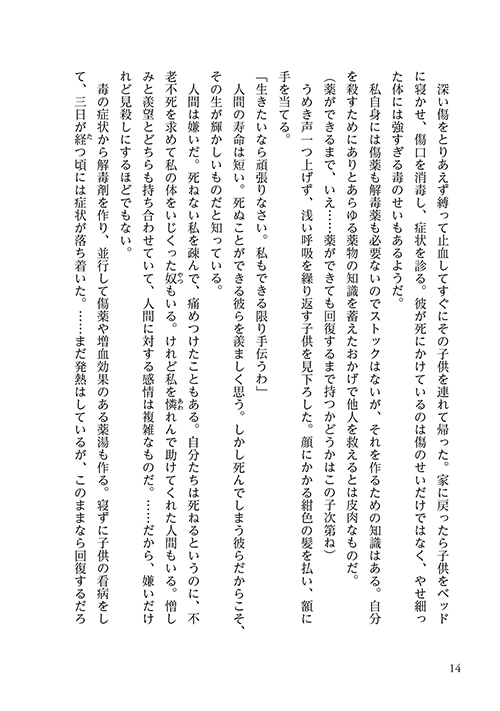 深い傷をとりあえず縛って止血してすぐにその子供を連れて帰った。家に戻ったら子供をベッド
に寝かせ、傷口を消毒し、症状を診る。彼が死にかけているのは傷のせいだけではなく、やせ細っ
た体には強すぎる毒のせいもあるようだ。
　私自身には傷薬も解毒薬も必要ないのでストックはないが、それを作るための知識はある。自分
を殺すためにありとあらゆる薬物の知識を蓄えたおかげで他人を救えるとは皮肉なものだ。
（薬ができるまで、いえ……薬ができても回復するまで持つかどうかはこの子次第ね）
　うめき声一つ上げず、浅い呼吸を繰り返す子供を見下ろした。顔にかかる紺色の髪を払い、額に
手を当てる。
「生きたいなら頑張りなさい。私もできる限り手伝うわ」
　人間の寿命は短い。死ぬことができる彼らを羨ましく思う。しかし死んでしまう彼らだからこそ、
その生が輝かしいものだと知っている。
　人間は嫌いだ。死ねない私を疎んで、痛めつけたこともある。自分たちは死ねるというのに、不
老不死を求めて私の体をいじくった奴もいる。けれど私を憐れんで助けてくれた人間もいる。憎し
みと羨望とどちらも持ち合わせていて、人間に対する感情は複雑なものだ。……だから、嫌いだけ
れど見殺しにするほどでもない。
　毒の症状から解毒剤を作り、並行して傷薬や増血効果のある薬湯も作る。寝ずに子供の看病をし
て、三日が経つ頃には症状が落ち着いた。……まだ発熱はしているが、このままなら回復するだろ
14